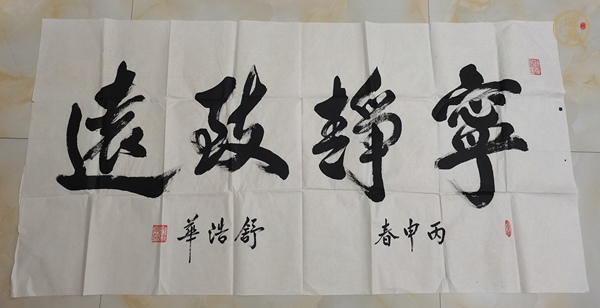 寧靜致遠
丙申春
舒浩華